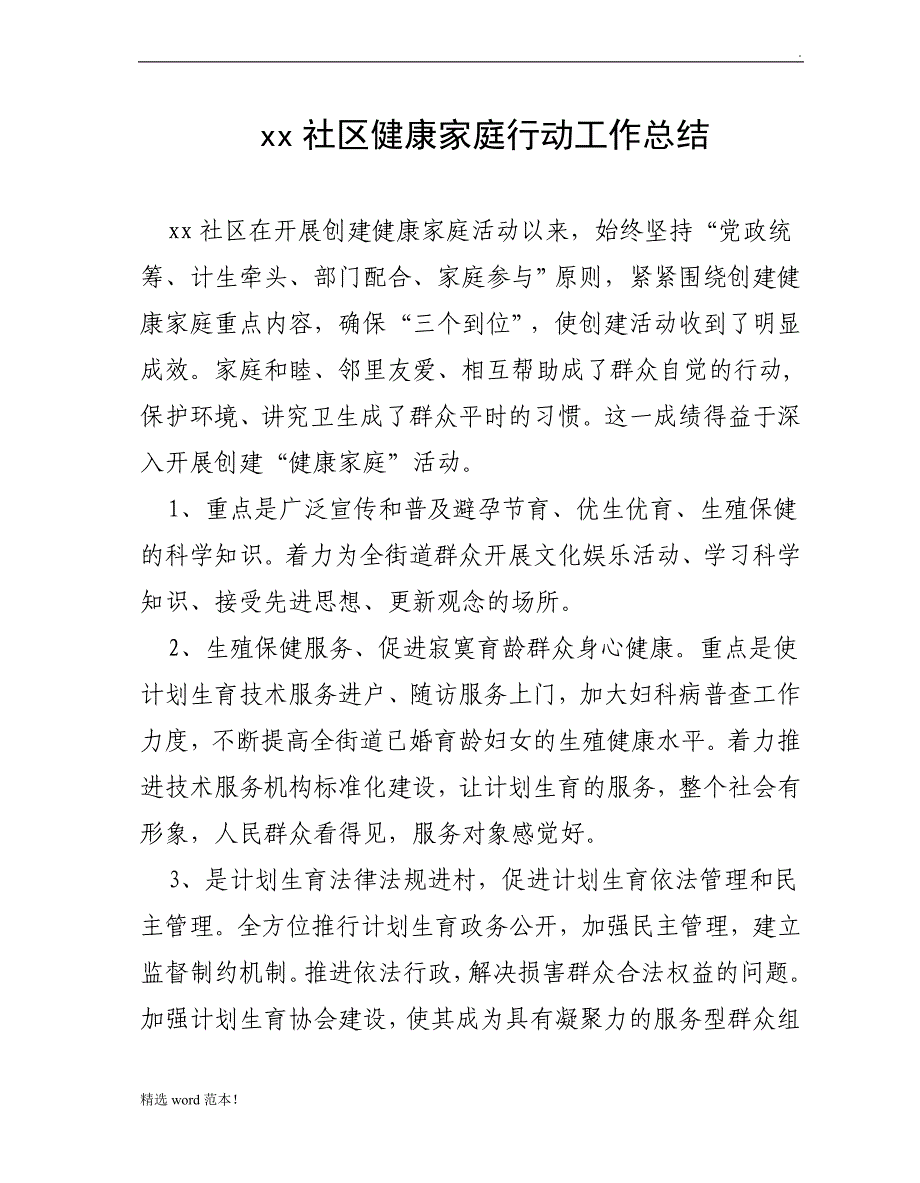 xx 社区健康家庭行动工作总结
xx 社区在开展创建健康家庭活动以来，始终坚持“党政统
筹、计生牵头、部门配合、家庭参与”原则，紧紧围绕创建健
康家庭重点内容，确保“三个到位”，使创建活动收到了明显
成效。家庭和睦、邻里友爱、相互帮助成了群众自觉的行动，
保护环境、讲究卫生成了群众平时的习惯。这一成绩得益于深
入开展创建“健康家庭”活动。
1、重点是广泛宣传和普及避孕节育、优生优育、生殖保健
的科学知识。着力为全街道群众开展文化娱乐活动、学习科学
知识、接受先进思想、更新观念的场所。
2、生殖保健服务、促进寂寞育龄群众身心健康。重点是使
计划生育技术服务进户、随访服务上门，加大妇科病普查工作
力度，不断提高全街道已婚育龄妇女的生殖健康水平。着力推
进技术服务机构标准化建设，让计划生育的服务，整个社会有
形象，人民群众看得见，服务对象感觉好。
3、是计划生育法律法规进村，促进计划生育依法管理和民
主管理。全方位推行计划生育政务公开，加强民主管理，建立
监督制约机制。推进依法行政，解决损害群众合法权益的问题。
加强计划生育协会建设，使其成为具有凝聚力的服务型群众组
精选 word 范本！